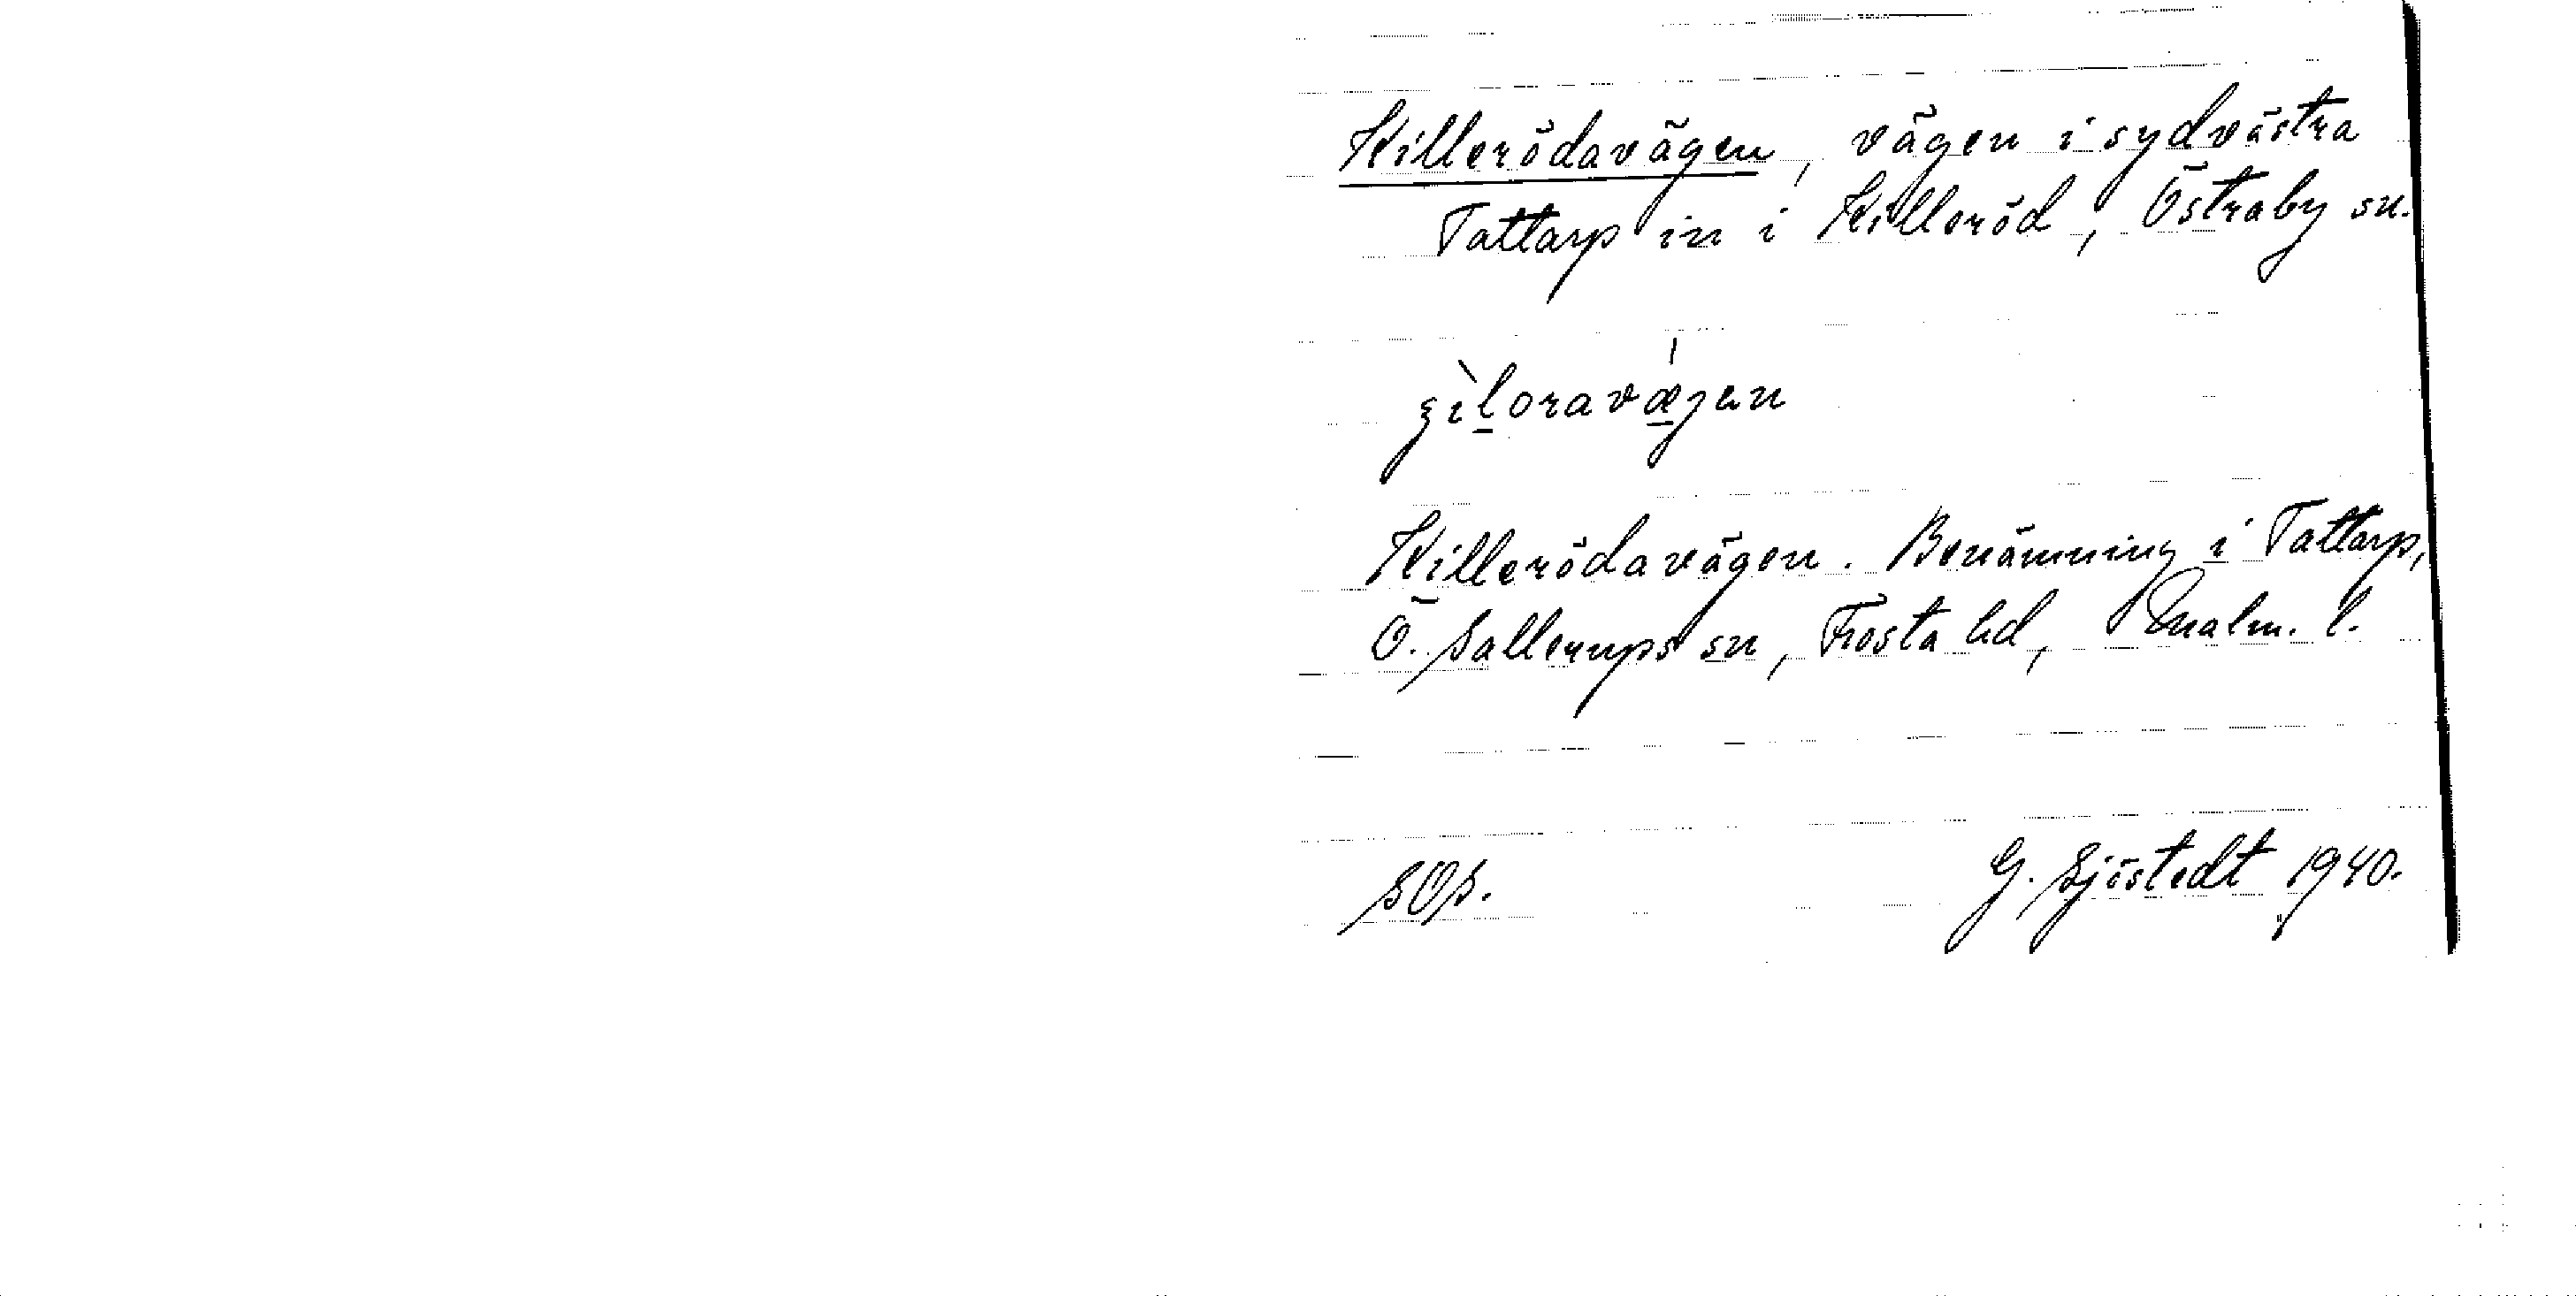 Killerödavägen, vägen i sydvästra
Tattarp in i Killeröd, Östraby sn.
Killerödavägen. Benämning i Tattarp,
Ö. Sallerups sn, Frosta hd, Malm. l.
SOS. G. Sjöstedt 1940.